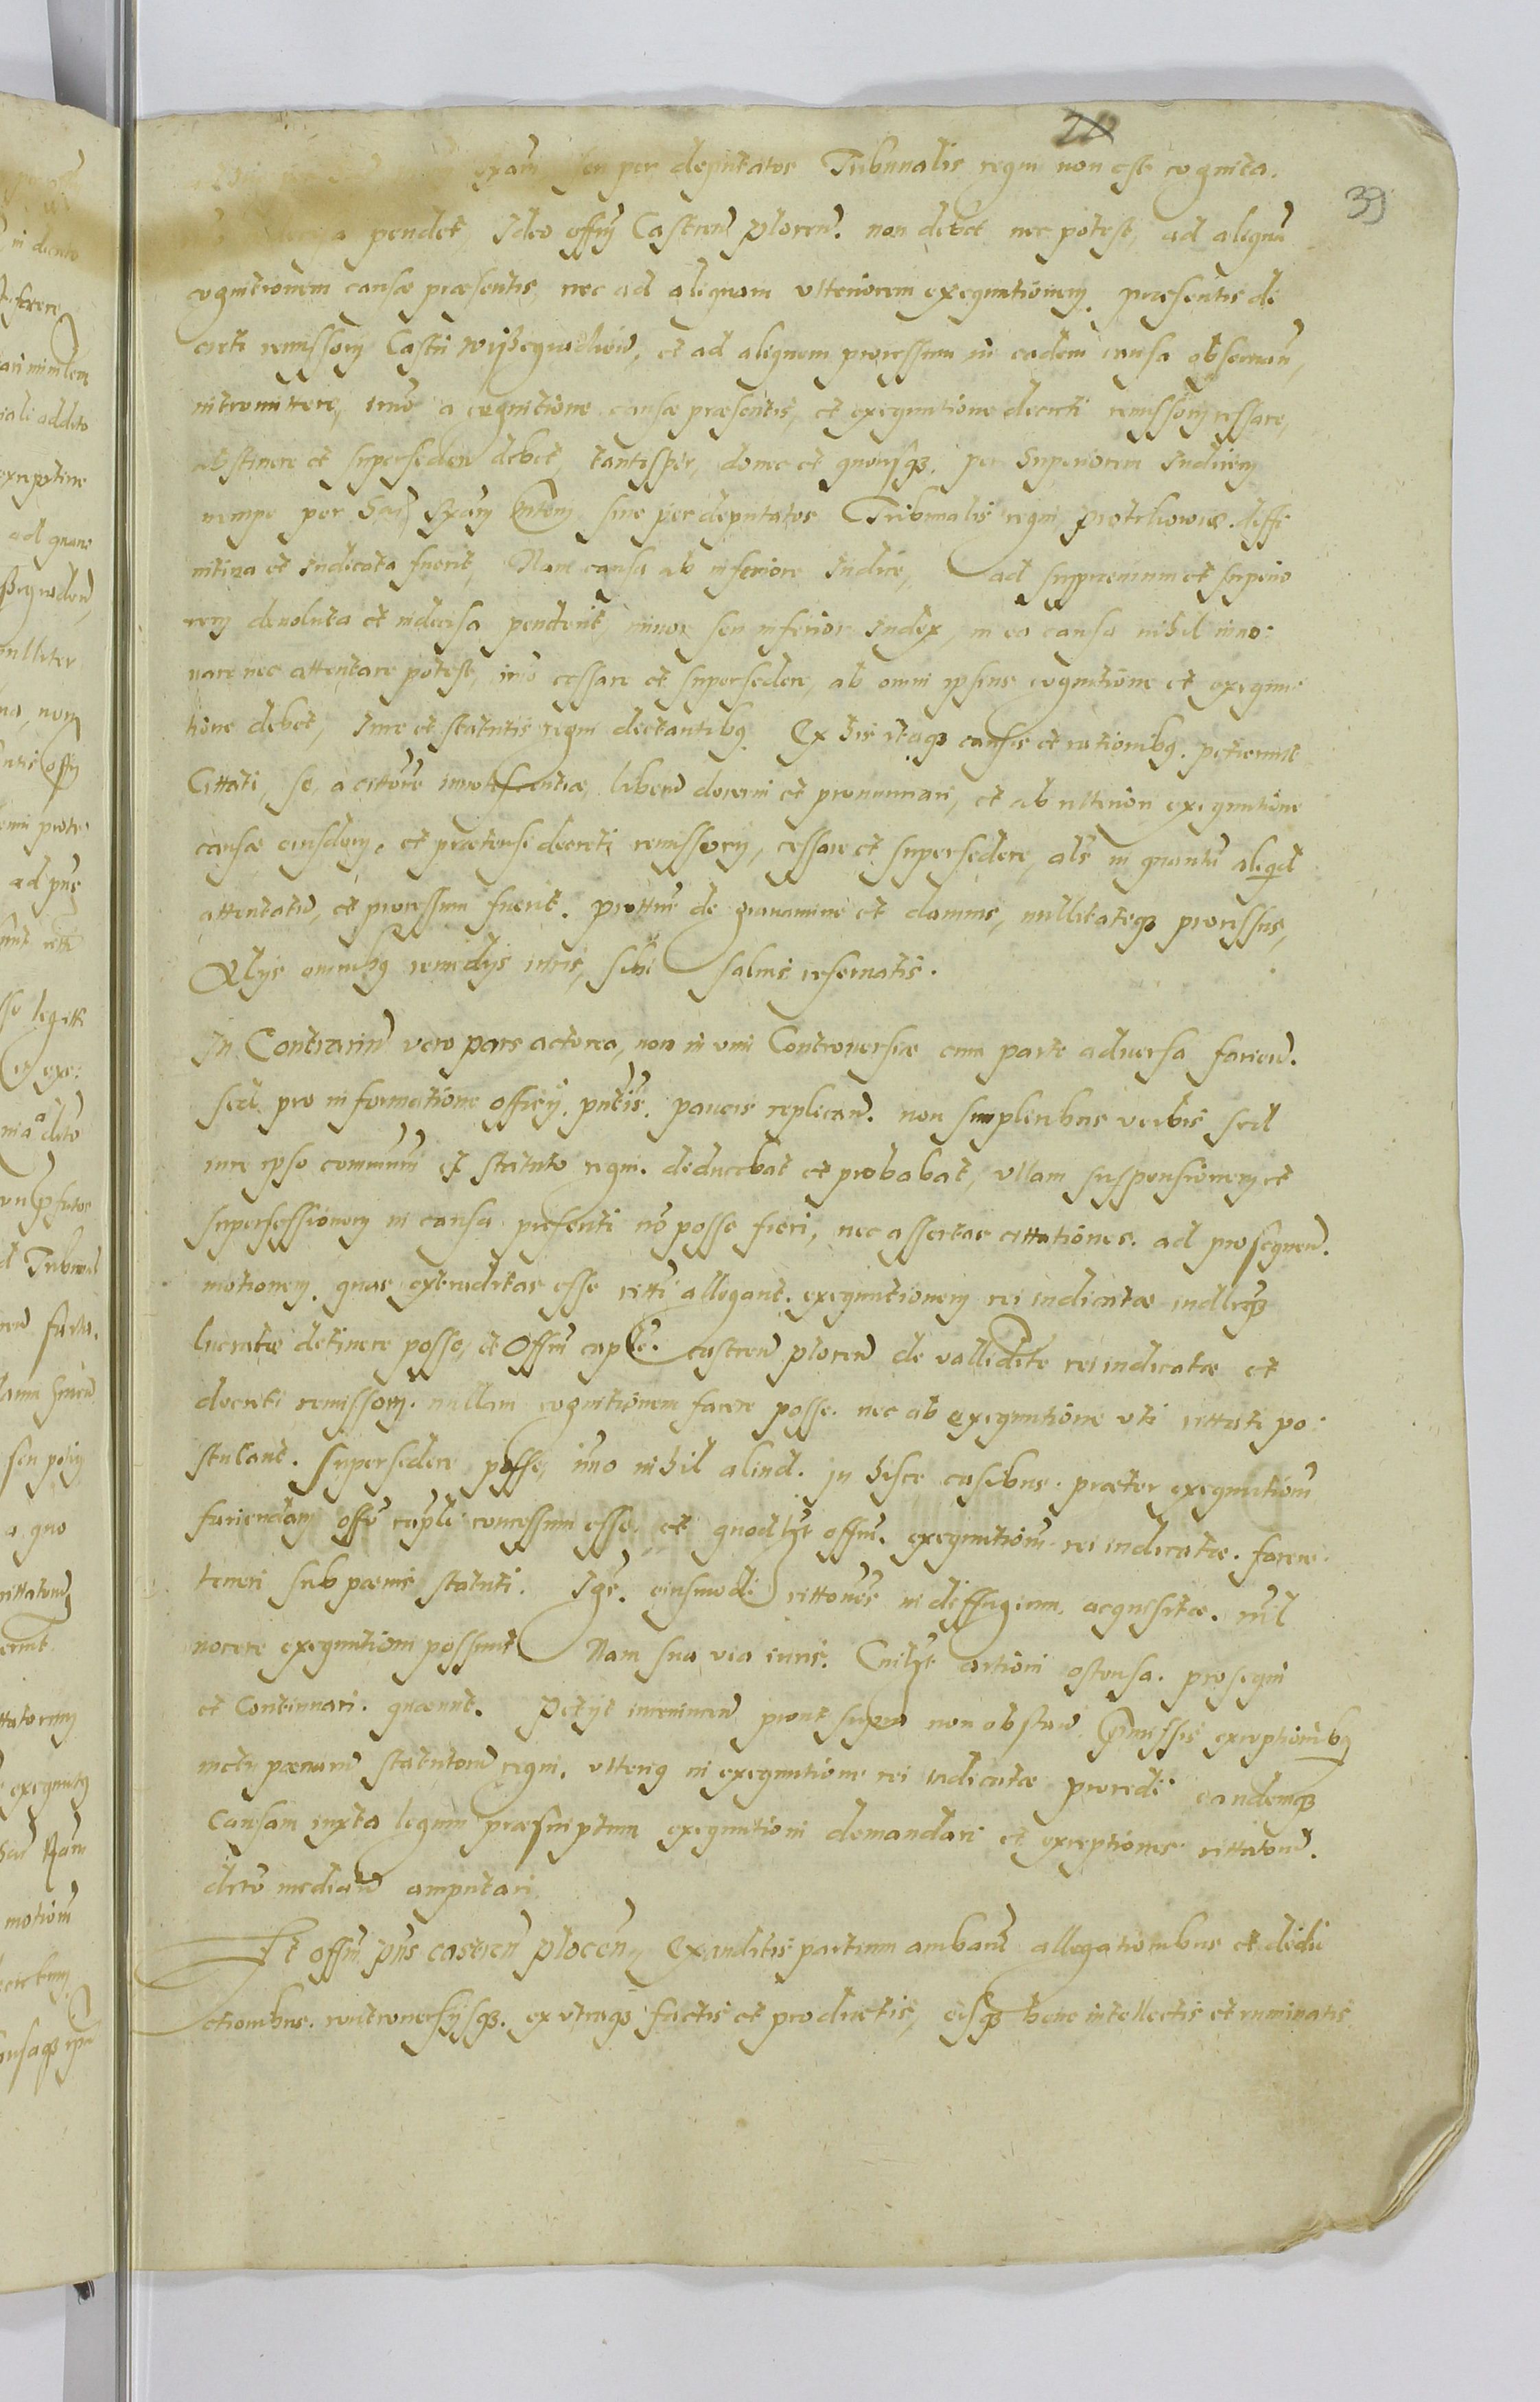 39
seu per deputatos Tribunalis regni non est cognita.
pendet, Ideo offm Castren Plocen. non debet nec potest, ad aliqua
cognitionem causæ præsentis, nec ad aliquam vlteriorem exequutionem præsentis de
creti remissorij Castri Wyssegradien, et ad aliquem processum in eadem causa obseruan,
intromittere, imo a cognitione causæ præsentis, et exequutione decreti remissorij cessare,
abstinere et supersedere debet, tantisper, donec et quousq3. per Superiorem Iudicem
nempe per siue per deputatos Tribunalis regni Piotrkowiæ. diffi
nitiua et Iudicata fuerit, Nam causa ab inferiore Iudice, ad suppremum et superio
rem deuoluta et indecisa pendente, minor seu inferior Iudex, in ea causa nihil inno:
uare nec attentare potest, imo cessare et supersedere, ab omni ipsius cognitione et exequu:
tione debet, Iure et statutis regni dictantibq. Ex his itaq3 causis et rationibq. petierunt
Cittati, se, a cittone liberu decerni et pronunciari, et ab vlteriori exequutione
causæ eiusdem, et prætensi decreti remissorij, cessare et supersedere, als in quantu aliqid
attentatu, et processum fuerit. prottur de grauamine et damnis, nullitateq3 processus,
Alijs omnibq remedijs iuris, sibi saluis reseruatis.
In Contrariu vero pars actorea, non in vim Controuersiæ cum parte aduersa facien.
sed pro informatione officij. pntis. paucis replican. non simplicibus verbis sed
iure ipso communi et statuto regni. deducebat et probabat, vllam suspensionem et
supersessionem in causa presenti no posse fieri, nec assertas cittationes. ad prosequen.
motionem. quas extraditas esse citti allegant. exequutionem rei iudicatæ
lucratæ detinere posse, et Offm caple. castren plocen de validite rei iudicatæ et
decreti remissorij. nullam cognitionem facere posse. nec ab exequutione vti cittati po:
stulant. supersedere posse, imo nihil aliud. in hisce casibus. præter exequutiom
faciendam offo capli concessum esse. et quodlzt offm. exequutiom rei iudicatæ. facere.
teneri sub pœnis statuti. Igr. eiusmodi cittones in diffugium acquisitæ. nil
nocere exequutioni possunt Nam sua via iuris. Cuilzt actioni ostensa. prosequi
et Continuari. queunt. Petijt prout supra non obstan. pmissis exceptionibq
metu pœnaru statutoru regni. vlteriq in exequutione rei iudicatæ procedi eandemq3
Causam iuxta legum præscriptum exequutioni demandari et exceptiones cittatoru.
dcto median amputari.
Et offm pns castren Plocen, Exauditis partium ambaru allegationibus et dedu
ctionibus. controuersijsq3. ex vtraq3 factis et productis, eisq3 bene intellectis et ruminatis